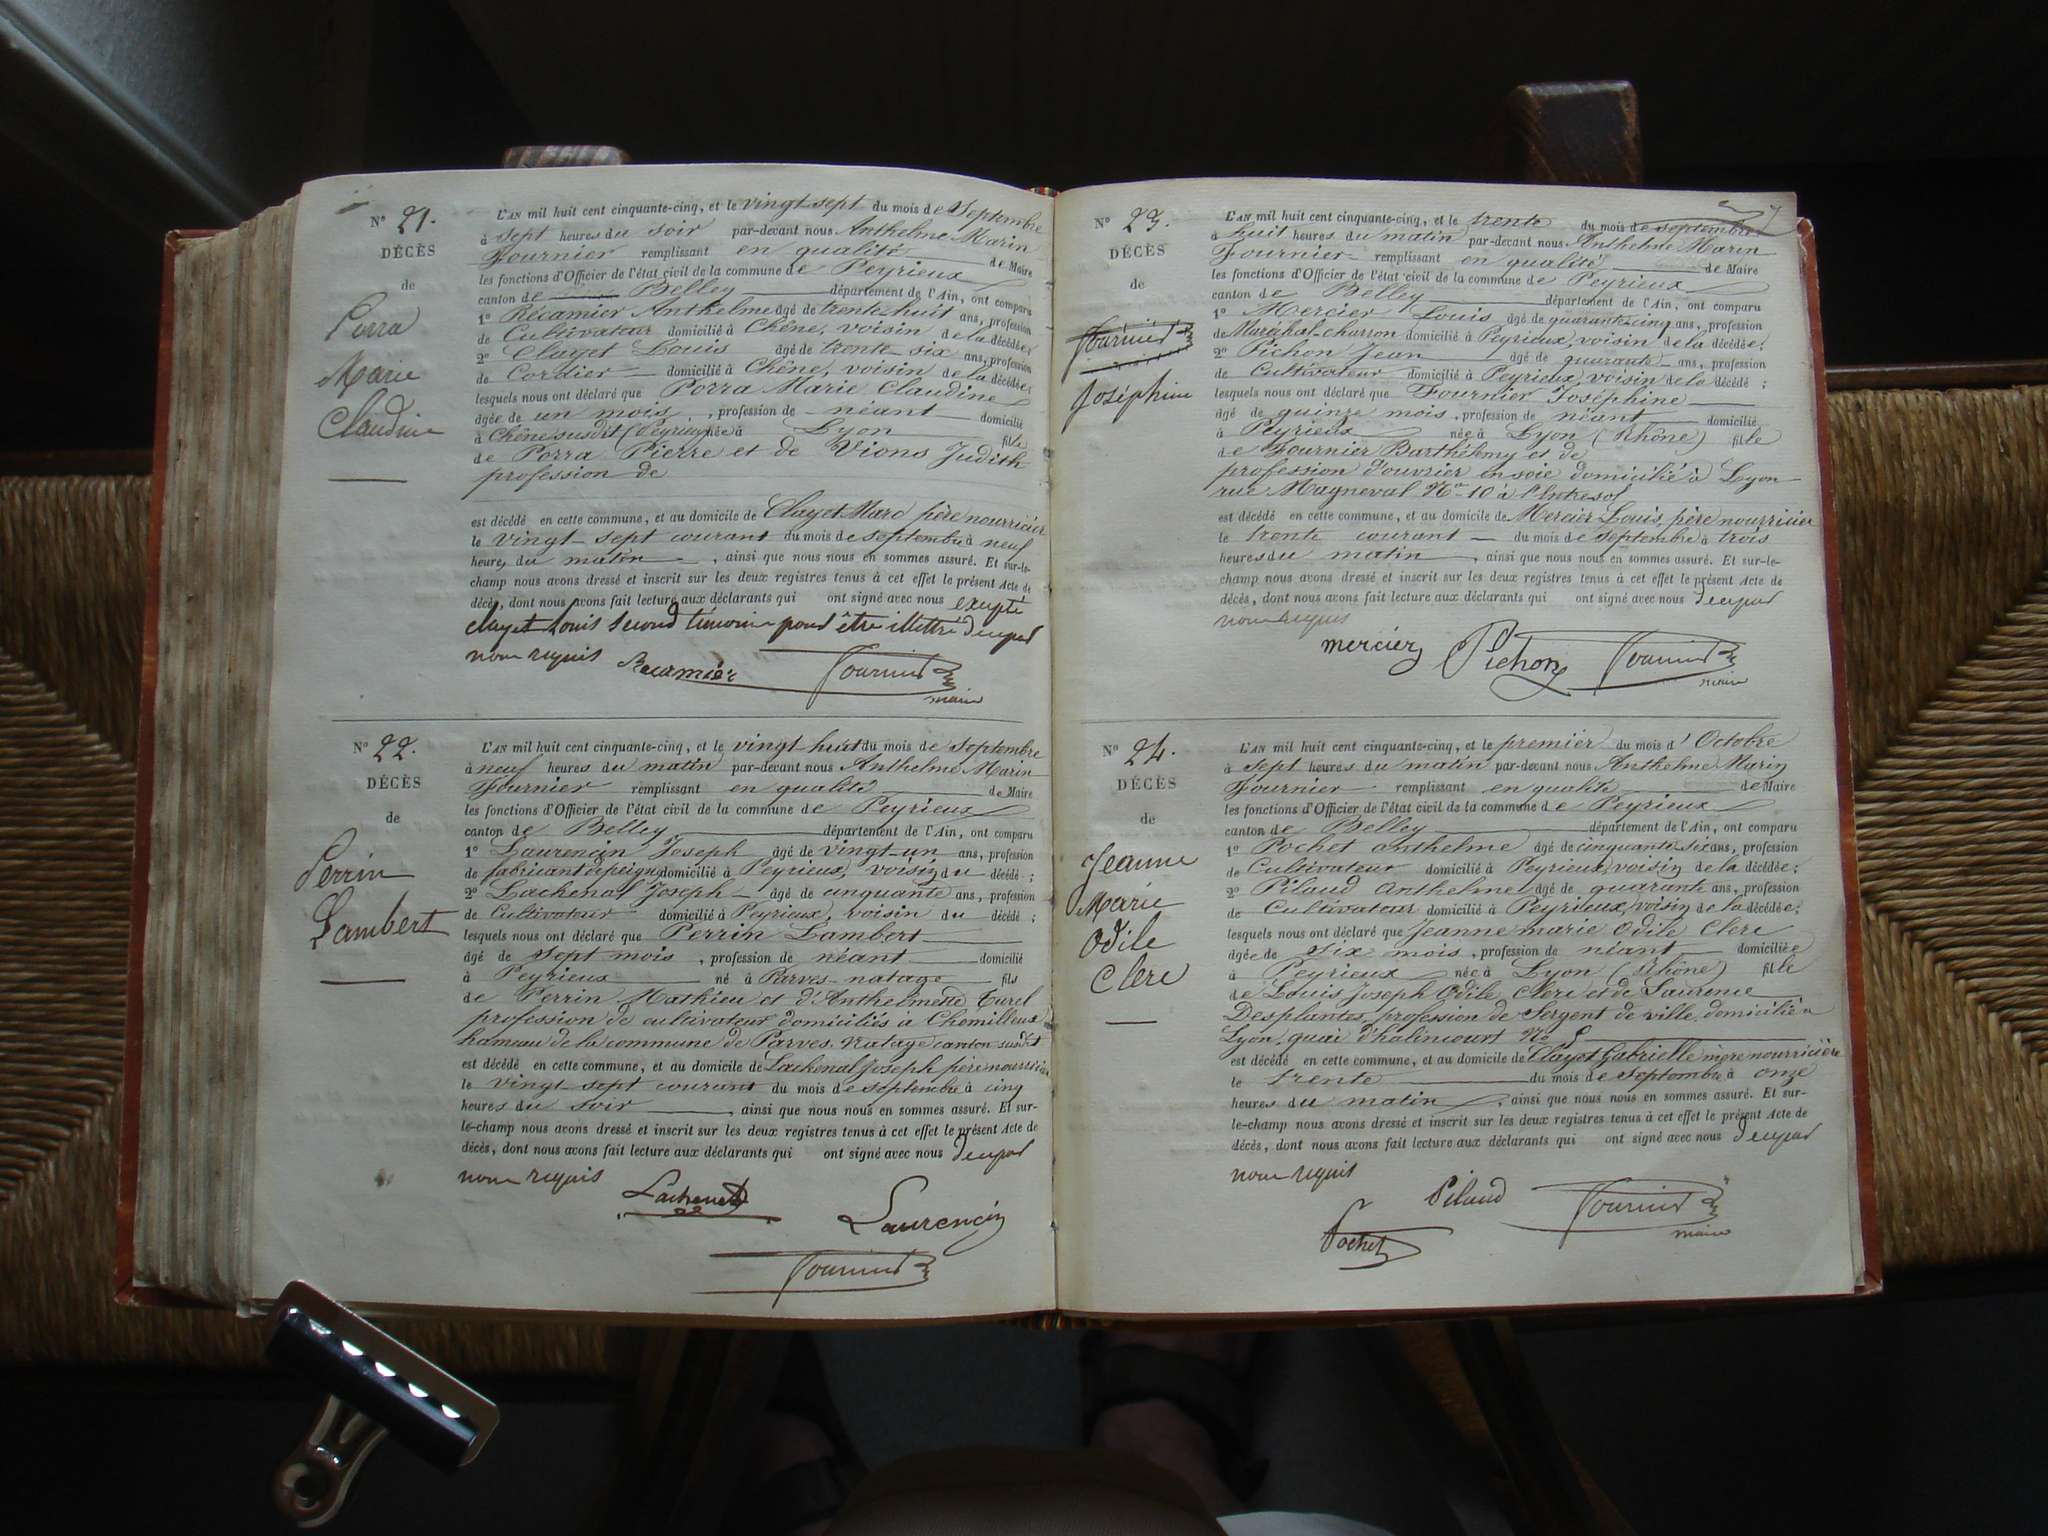 N° 21.
DÉCÈS
de
Porra
Marie
Claudine
L'AN mil huit cent cinquante-cinq, et le vingt sept du mois de Septembre
à sept heures du soir par-devant nous Anthelme Marin
Fournier remplissant en qualité de Maire
les fonctions d'Officier de l'état civil de la commune de Peyrieux
canton de Belley département de l'Ain, ont comparu
1° Récamier Anthelme âgé de trente-huit ans, profession
de Cultivateur domicilié à Chêne, voisin de la décédée;
2° Clayet Louis âgé de trente-six ans, profession
de Cordier domicilié à Chêne, voisin de la décédée;
lesquels nous ont déclaré que Porra Marie Claudine
âgée de un mois, profession de néant domicilié
à Chêne susdit (Peyrieux) née à Lyon fille
de Porra Pierre et de Vions Judith
profession de
est décédé en cette commune, et au domicile de Clayet Marc père nourricier
le vingt-sept courant du mois de septembre à neuf
heures du matin, ainsi que nous nous en sommes assuré. Et sur-le-
champ nous avons dressé et inscrit sur les deux registres tenus à cet effet le présent Acte de
décès, dont nous avons fait lecture aux déclarants qui ont signé avec nous excepté
clayet Louis second témoin pour être illettré de ce par
nous requis Récamier Fournier
maire
N° 22.
DÉCÈS
de
Perrin
Lambert
L'AN mil huit cent cinquante-cinq, et le vingt-huit du mois de septembre
à neuf heures du matin par-devant nous Anthelme Marin
Fournier remplissant en qualité de Maire
les fonctions d'Officier de l'état civil de la commune de Peyrieux
canton de Belley département de l'Ain, ont comparu
1° Laurencin Joseph âgé de vingt-un ans, profession
de fabricant de peignes domicilié à Peyrieux, voisin du décédé;
2° Lachenal Joseph âgé de cinquante ans, profession
de Cultivateur domicilié à Peyrieux, voisin du décédé;
lesquels nous ont déclaré que Perrin Lambert
âgé de sept mois, profession de néant domicilié
à Peyrieux né à Parves-natage fils
de Perrin Mathieu et d'Anthelmette Curel
profession de cultivateur domiciliés à Chemilleux
hameau de la commune de Parves-Natage canton susdit
est décédé en cette commune, et au domicile de Lachenal Joseph père nourricier
le vingt-sept courant du mois de septembre à cinq
heures du soir, ainsi que nous nous en sommes assuré. Et sur-
le-champ nous avons dressé et inscrit sur les deux registres tenus à cet effet le présent Acte de
décès, dont nous avons fait lecture aux déclarants qui ont signé avec nous de ce par
nous requis
Lachenal Laurencin
Fournier
N° 23.
DÉCÈS
de
Fournier
Joséphine
L'AN mil huit cent cinquante-cinq, et le trente du mois de septembre
à huit heures du matin par-devant nous Anthelme Marin
Fournier remplissant en qualité de Maire
les fonctions d'Officier de l'état civil de la commune de Peyrieux
canton de Belley département de l'Ain, ont comparu
1° Mercier Louis âgé de quarante-cinq ans, profession
de Maréchal-charron domicilié à Peyrieux, voisin de la décédée;
2° Pichon Jean âgé de quarante ans, profession
de Cultivateur domicilié à Peyrieux, voisin de la décédé;
lesquels nous ont déclaré que Fournier Joséphine
âgé de quinze mois, profession de néant domicilié
à Peyrieux née à Lyon (Rhône) fille
de Fournier Barthélemy et de
profession d'ouvrier en soie domicilié à Lyon
rue Magneval N° 10 à l'Entresol
est décédé en cette commune, et au domicile de Mercier Louis, père nourricier
le trente courant du mois de septembre à trois
heures du matin, ainsi que nous nous en sommes assuré. Et sur-le-
champ nous avons dressé et inscrit sur les deux registres tenus à cet effet le présent Acte de
décès, dont nous avons fait lecture aux déclarants qui ont signé avec nous de ce par
nous requis
mercier Pichon Fournier
maire
N° 24.
DÉCÈS
de
Jeanne
Marie
Odile
Clerc
L'AN mil huit cent cinquante-cinq, et le premier du mois d'Octobre
à sept heures du matin par-devant nous Anthelme Marin
Fournier remplissant en qualité de Maire
les fonctions d'Officier de l'état civil de la commune de Peyrieux
canton de Belley département de l'Ain, ont comparu
1° Pochet Anthelme âgé de cinquante six ans, profession
de Cultivateur domicilié à Peyrieux, voisin de la décédée;
2° Pilaud Anthelme âgé de quarante ans, profession
de Cultivateur domicilié à Peyrieux, voisin de la décédée;
lesquels nous ont déclaré que Jeanne marie Odile Clerc
âgée de six mois, profession de néant domiciliée
à Peyrieux née à Lyon (Rhône) fille
de Louis Joseph Odile Clerc et de Laurence
Desplantes, profession de Sergent de ville, domicilié à
Lyon, quai d'halincourt No 5
est décédé en cette commune, et au domicile de Clayet Gabrielle mère nourricière
le trente du mois de septembre à onze
heures du matin, ainsi que nous nous en sommes assuré. Et sur-
le-champ nous avons dressé et inscrit sur les deux registres tenus à cet effet le présent Acte de
décès, dont nous avons fait lecture aux déclarants qui ont signé avec nous de ce par
nous requis
Pilaud Fournier
Pochet maire